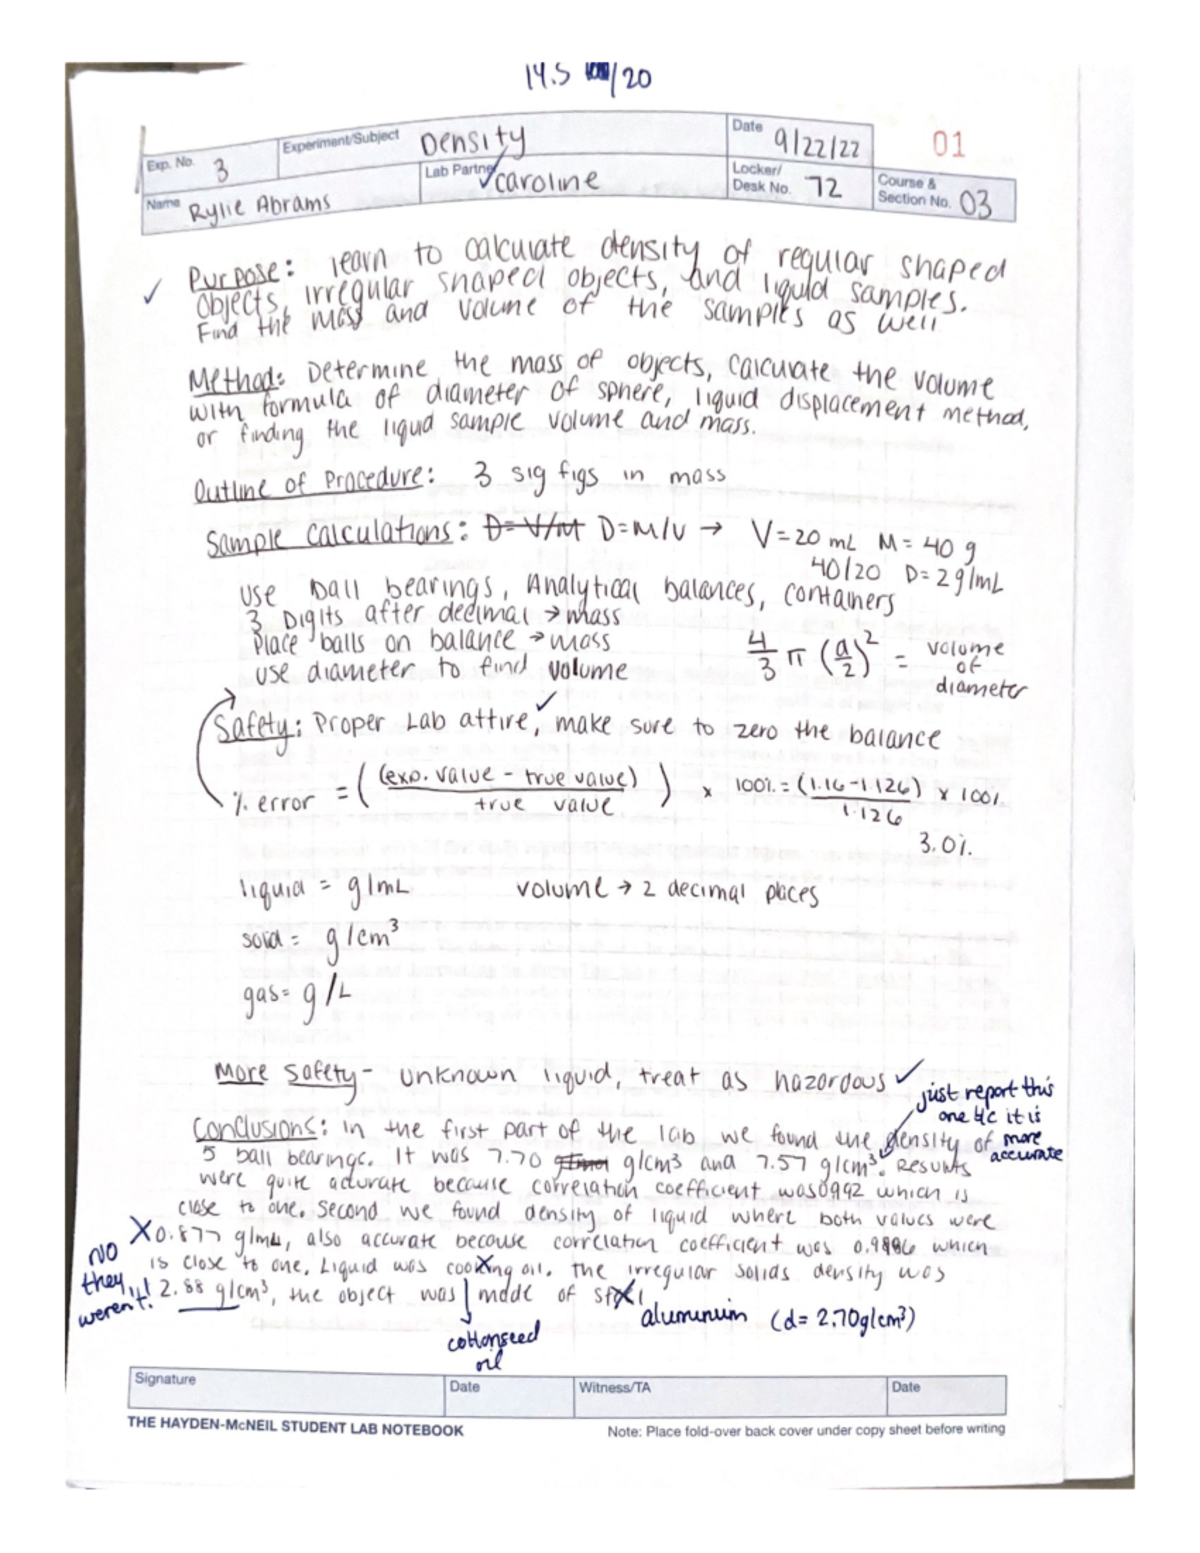 14.5 /20
Exp. No. 3 Experiment/Subject Density Date 9/22/22 01
Name Rylie Abrams Lab Partner ✓caroline Locker/ Desk No. 72 Course & Section No. 03
✓ Purpose: learn to calculate density of regular shaped
objects, irregular shaped objects, and liquid samples.
Find the mass and volume of the samples as well
Method: Determine the mass of objects, calculate the volume
with formula of diameter of sphere, liquid displacement method,
or finding the liquid sample volume and mass.
Outline of Procedure: 3 sig figs in mass
Sample Calculations: D=V/M D=M/V → V=20 mL M=40 g
40/20 D=2g/mL
Use Ball bearings, Analytical balances, containers
3 Digits after decimal → mass
Place balls on balance → mass
use diameter to find volume
4/3 π (a/2)² = volume of diameter
Safety: Proper Lab attire, ✓ make sure to zero the balance
% error = ((exp. value - true value) / true value) x 100% = (1.16-1.126) / 1.126 x 100%
3.0%
liquid = g/mL volume → 2 decimal places
solid = g/cm³
gas= g/L
More Safety- unknown liquid, treat as hazordous ✓
just report this
one b/c it is
more
accurate
Conclusions: in the first part of the lab we found the density of
5 ball bearings. It was 7.70 g/cm³ and 7.57 g/cm³. Results
were quite accurate because correlation coefficient was 0.992 which is
close to one. Second we found density of liquid where both values were
X 0.877 g/mL, also accurate because correlation coefficient was 0.9986 which
is close to one. Liquid was cooking oil. the irregular solids density was
2.88 g/cm³, the object was made of
NO
they
weren't!
aluminum (d= 2.70g/cm³)
cottonseed
oil
Signature Date Witness/TA Date
THE HAYDEN-McNEIL STUDENT LAB NOTEBOOK Note: Place fold-over back cover under copy sheet before writing